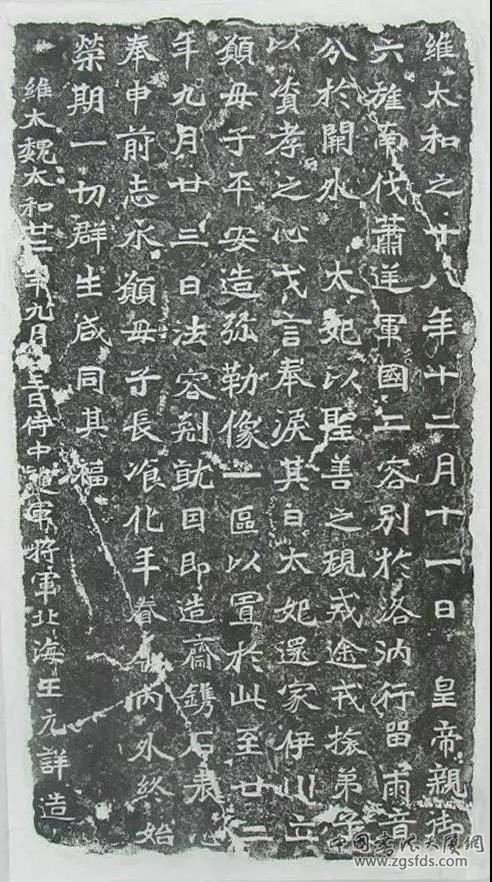 維太和之十八年十二月十一日 皇帝親御
六旌南伐蕭逆軍國二容別於洛汭行留兩音
分於闕外 太妃以聖善之規戒途戎旅弟子
以資孝之心戈言奉淚其日太妃還家伊川立
願母子平安造弥勒像一區以置於此至廿二
年九月廿三日法容剋就因即造齋鐫石表心
奉申前志永願母子長飡化年眷內外終始
榮期一切群生咸同其福
維大魏太和廿二年九月廿三日侍中護軍將軍北海王元詳造
中國書法大厦網
www.zgsfds.com